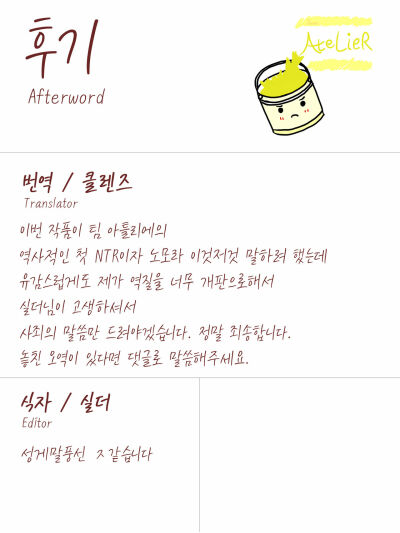 후기
Afterword
AteLieR
번역 / 클렌즈
Translator
이번 작품이 팀 아틀리에의
역사적인 첫 NTR이자 노모라 이것저것 말하려 했는데
유감스럽게도 제가 역질을 너무 개판으로해서
실더님이 고생하셔서
사죄의 말씀만 드려야겠습니다. 정말 죄송합니다.
놓친 오역이 있다면 댓글로 말씀해주세요.
식자 / 실더
Editor
성게말풍선 ㅈ같습니다